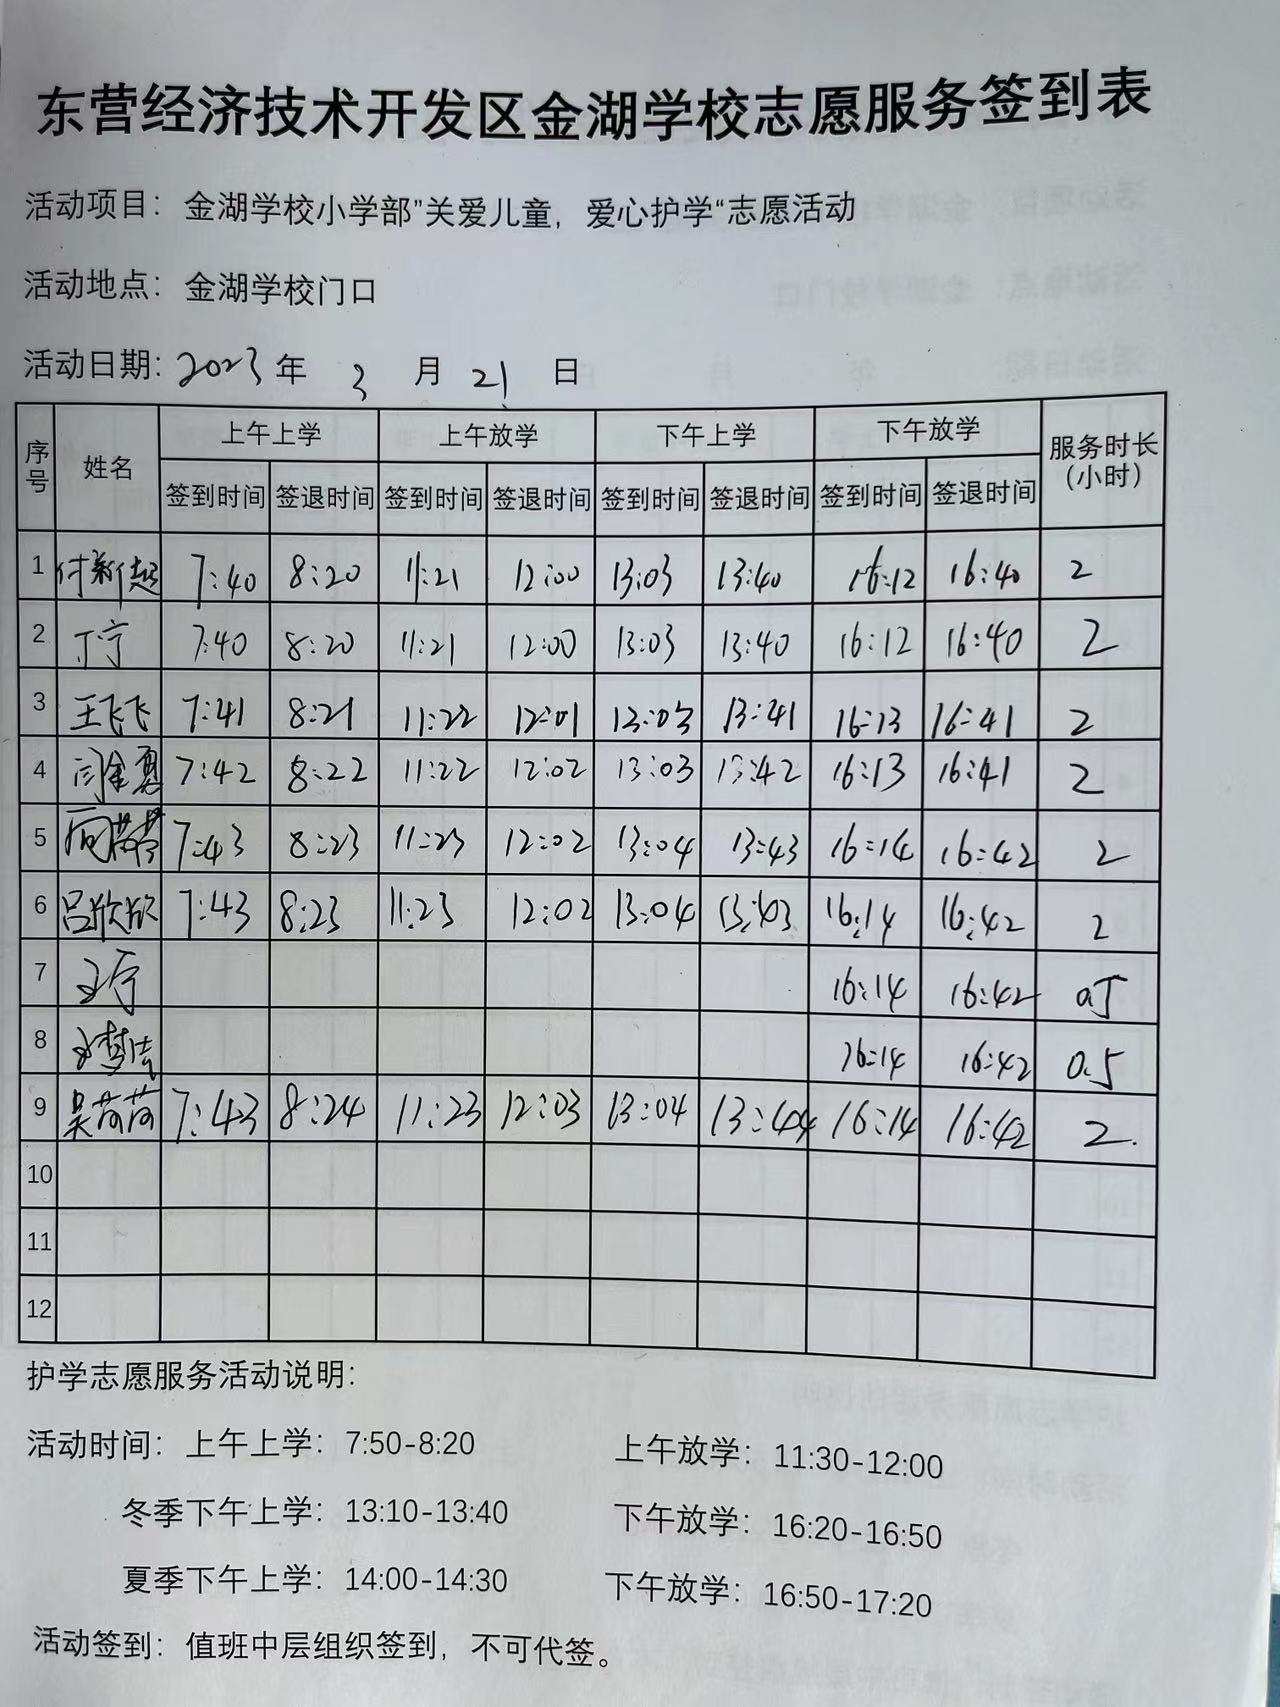 东营经济技术开发区金湖学校志愿服务签到表
活动项目：金湖学校小学部"关爱儿童，爱心护学"志愿活动
活动地点：金湖学校门口
活动日期：2023年 3 月 21 日
序号 姓名 上午上学 上午放学 下午上学 下午放学 服务时长（小时）
签到时间 签退时间 签到时间 签退时间 签到时间 签退时间 签到时间 签退时间
1 付新超 7:40 8:20 11:21 12:00 13:03 13:40 16:12 16:40 2
2 丁宁 7:40 8:20 11:21 12:00 13:03 13:40 16:12 16:40 2
3 王飞飞 7:41 8:21 11:22 12:01 13:03 13:41 16:13 16:41 2
4 闫金勇 7:42 8:22 11:22 12:02 13:03 13:42 16:13 16:41 2
5 7:43 8:23 11:23 12:02 13:04 13:43 16:14 16:42 2
6 吕欣欣 7:43 8:23 11:23 12:02 13:04 13:43 16:14 16:42 2
7 16:14 16:42 0.5
8 16:14 16:42 0.5
9 吴荷荷 7:43 8:24 11:23 12:03 13:04 13:44 16:14 16:42 2.
10
11
12
护学志愿服务活动说明：
活动时间：上午上学：7:50-8:20 上午放学：11:30-12:00
冬季下午上学：13:10-13:40 下午放学：16:20-16:50
夏季下午上学：14:00-14:30 下午放学：16:50-17:20
活动签到：值班中层组织签到，不可代签。